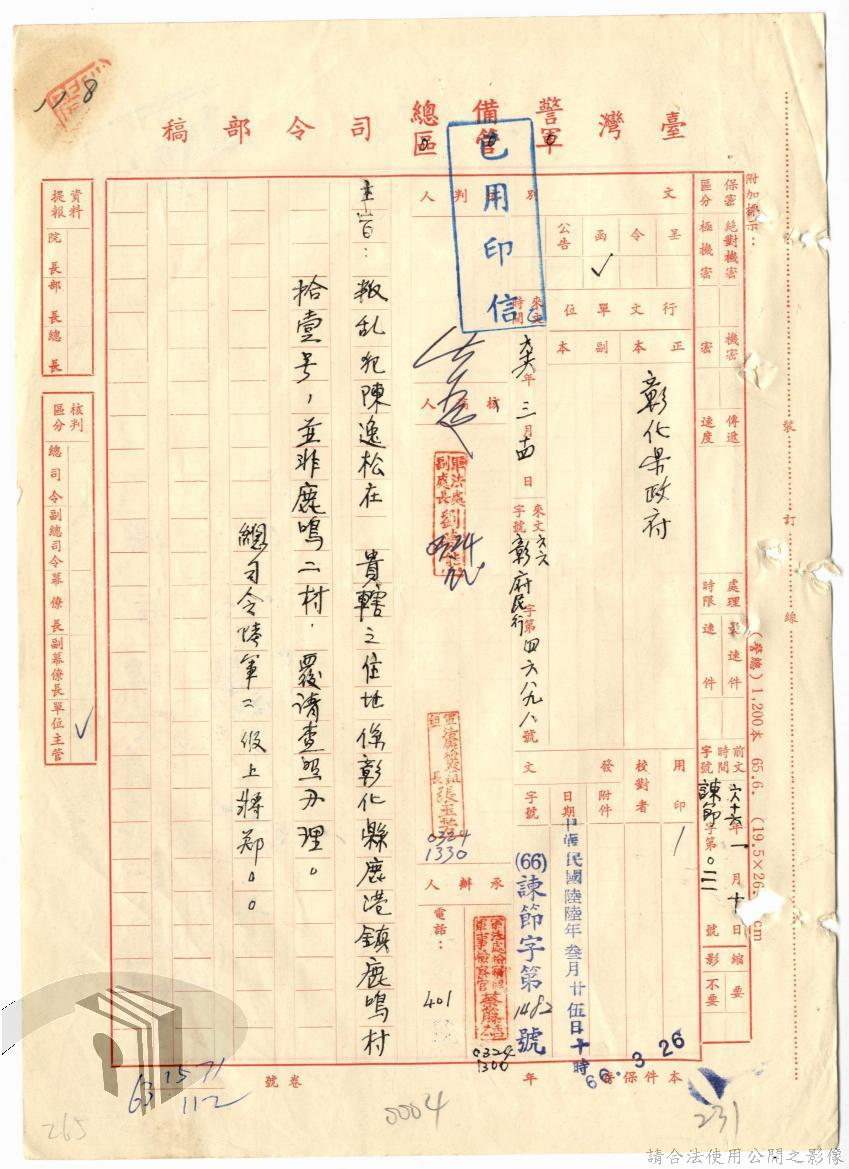 臺灣警備總司令部稿
軍管區
已用印信
附加標示：
裝訂線
(警總) 1,200本 65.6. (19.5×26. cm
保密區分
絕對機密
極機密
機密
密
傳遞速度
處理時限
最速件
速件
前文時間字號
六十六年一月十日
諫節字第〇二二號
縮影
要
不要
文別
呈
令
函 ✓
公告
行文單位
正本
副本
彰化縣政府
用印
校對者
發文
附件
日期
字號
中華民國陸陸年叁月廿伍日十時
(66)諫節字第1482號
66.3.26
本件保密
年
來文時間
六六年三月十四日
來文字號
六六彰府民行字第四六八九八號
判人
核稿人
軍法處副處長劉
0324
張玉芸
0324
1330
承辦人
蔡藤雄
0324
1300
電話：401
主旨：叛乱犯陳逸松在　貴轄之住地係彰化縣鹿港鎮鹿鳴村
拾壹号，並非鹿鳴二村，覆請查照办理。
總司令陸軍二級上將鄭○○
資料提報
院長
部長
總長
核判區分
總司令
副總司令
幕僚長
副幕僚長
單位主管 ✓
卷號
63
1571
112
118
265
0004
231
請合法使用公開之影像